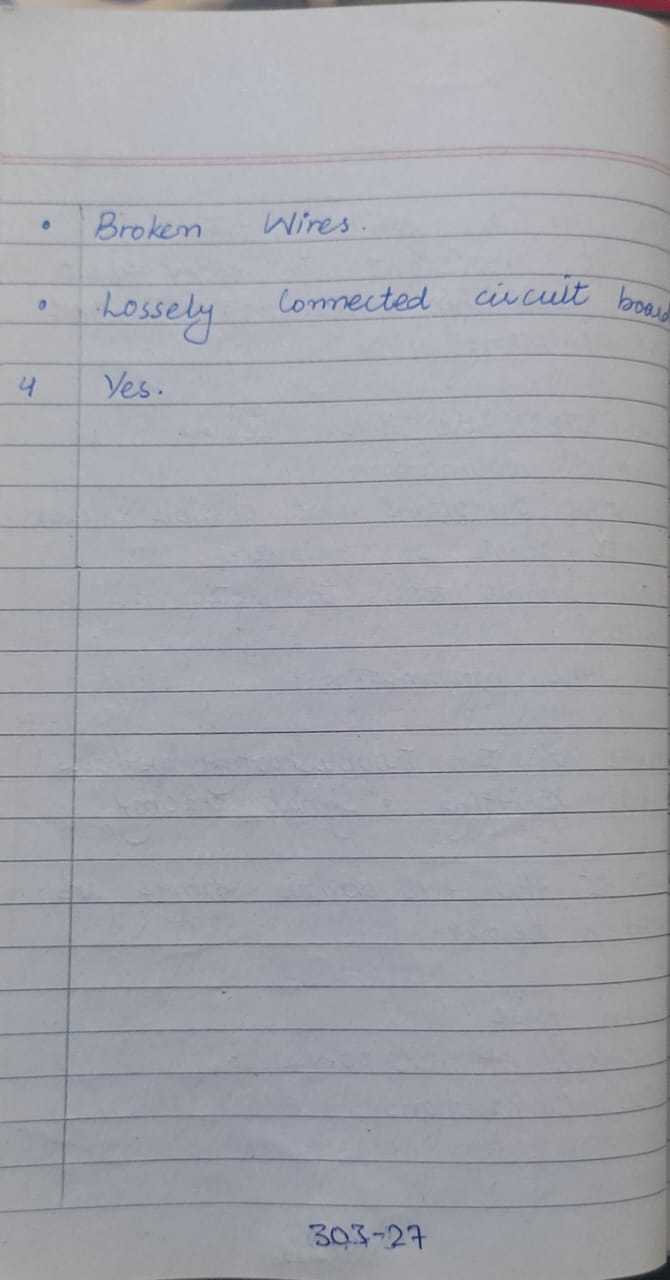 • Broken Wires.
• Lossely Connected circuit board
4 Yes.
303-27